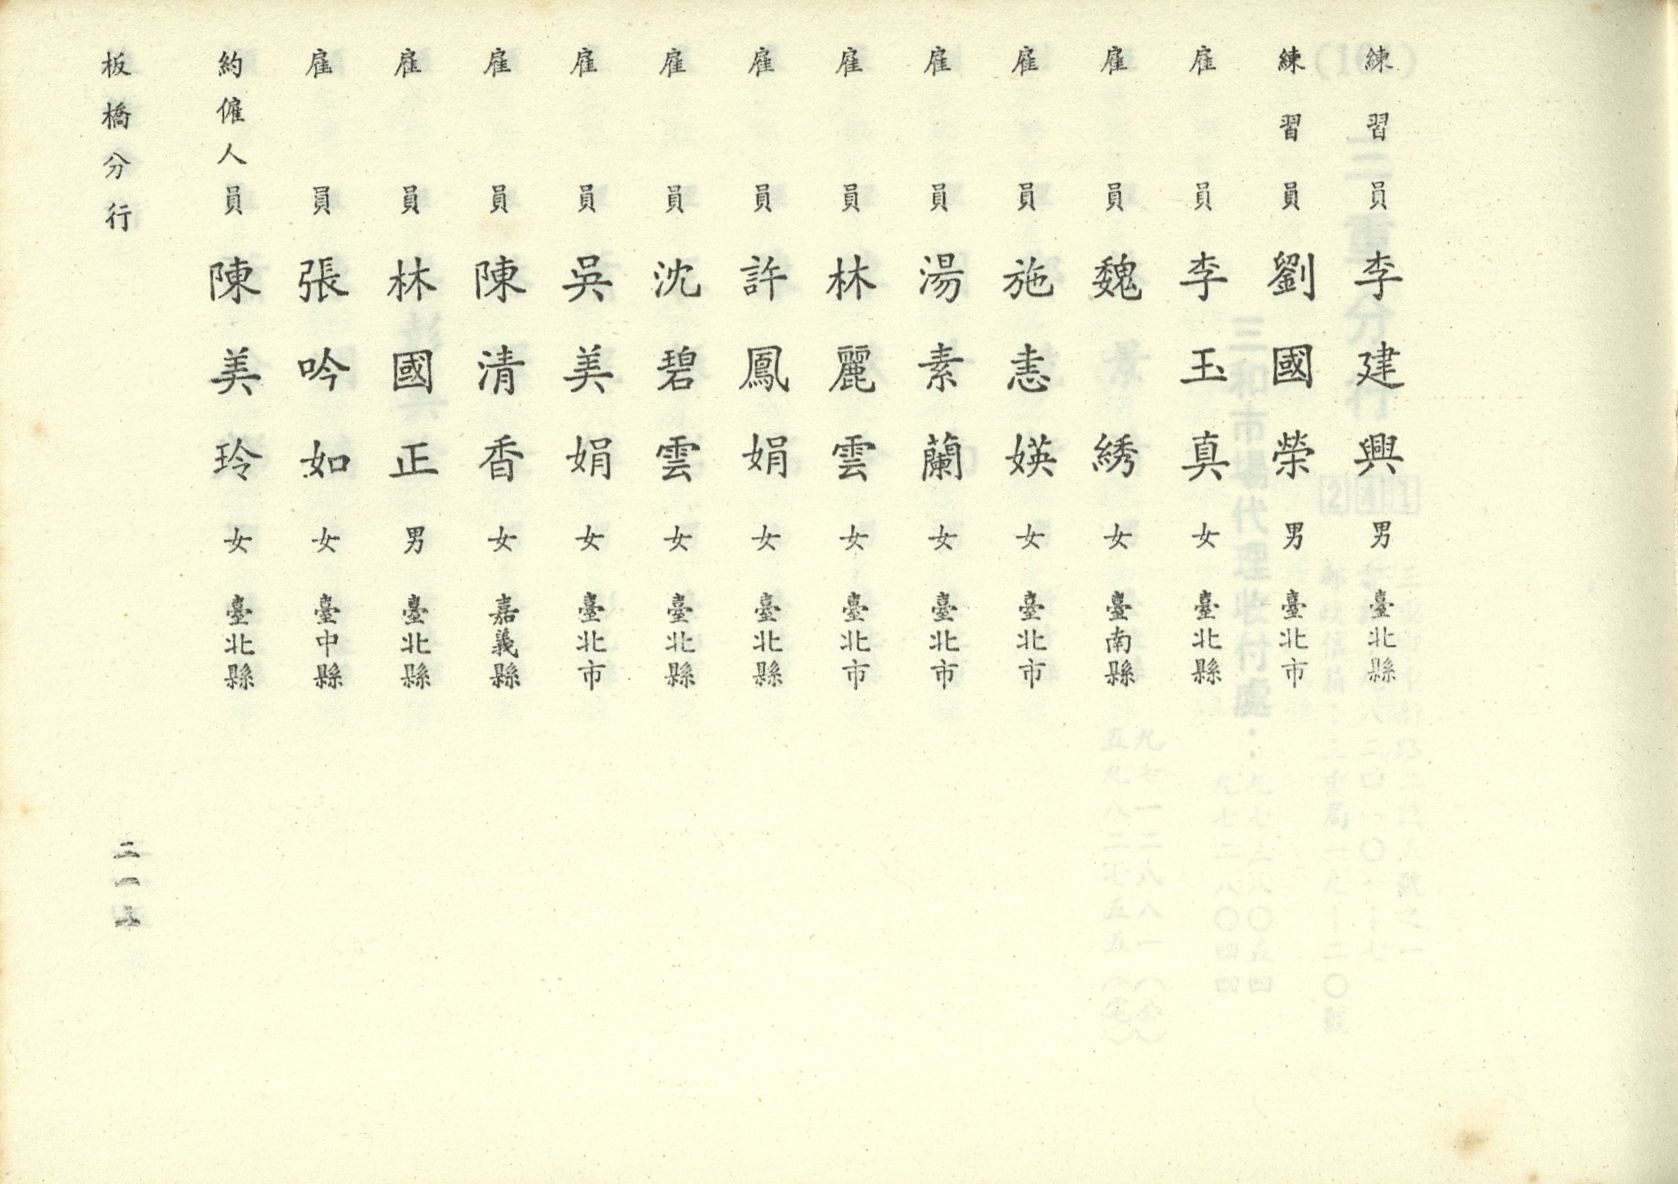 練習員 李建興 男 臺北縣
練習員 劉國榮 男 臺北市
雇員 李玉真 女 臺北縣
雇員 魏綉 女 臺南縣
雇員 施恚媖 女 臺北市
雇員 湯素蘭 女 臺北市
雇員 林麗雲 女 臺北市
雇員 許鳳娟 女 臺北縣
雇員 沈碧雲 女 臺北縣
雇員 吳美娟 女 臺北市
雇員 陳清香 女 嘉義縣
雇員 林國正 男 臺北縣
雇員 張吟如 女 臺中縣
約僱人員 陳美玲 女 臺北縣
板橋分行
二一三